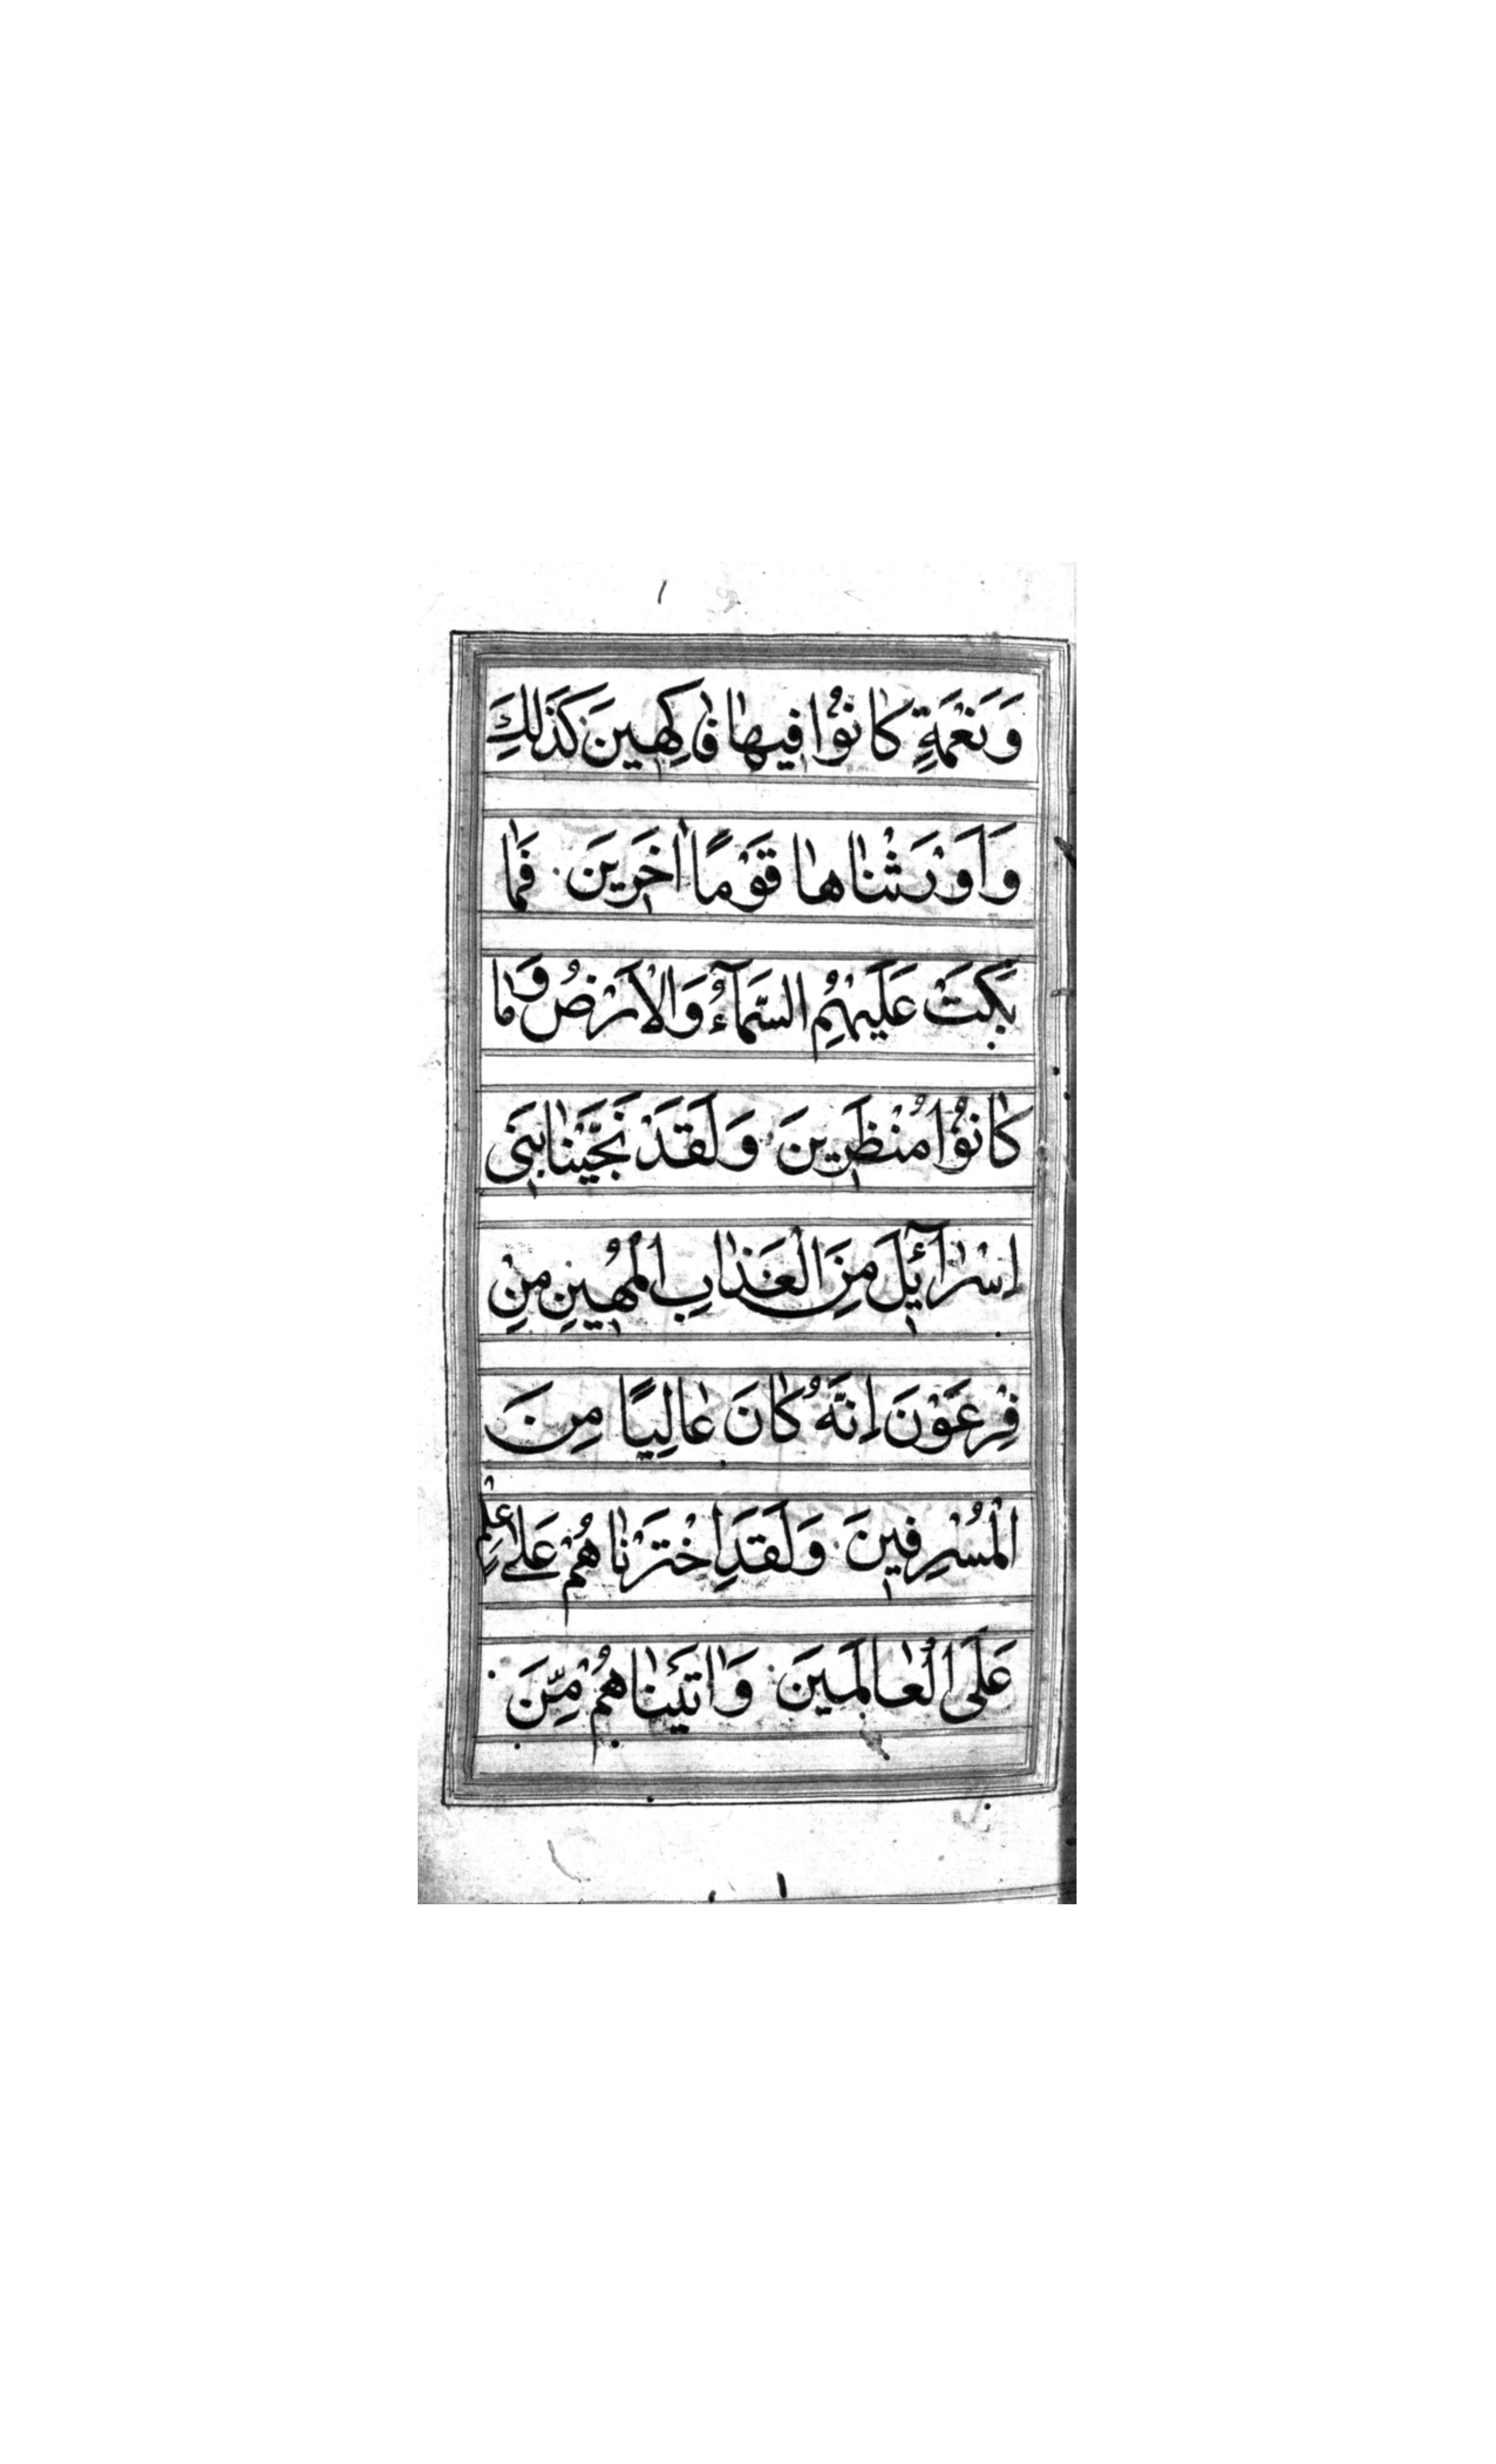 وَنَعْمَةٍ كَانُوْا فِيهَا فَاكِهِينَ كَذَلِكَ
وَاَوْرَثْنَاهَا قَوْمًا اٰخَرِينَ فَمَا
بَكَتْ عَلَيْهِمُ السَّمَآءُ وَالْاَرْضُ وَمَا
كَانُوْا مُنْظَرِينَ وَلَقَدْ نَجَّيْنَا بَنِى
اِسْرَآئِلَ مِنَ الْعَذَابِ الْمُهِينِ مِنْ
فِرْعَوْنَ اِنَّهُ كَانَ عَالِيًا مِنَ
الْمُسْرِفِينَ وَلَقَدِ اخْتَرْنَاهُمْ عَلٰى عِلْمٍ
عَلَى الْعَالَمِينَ وَاٰتَيْنَاهُمْ مِّنَ